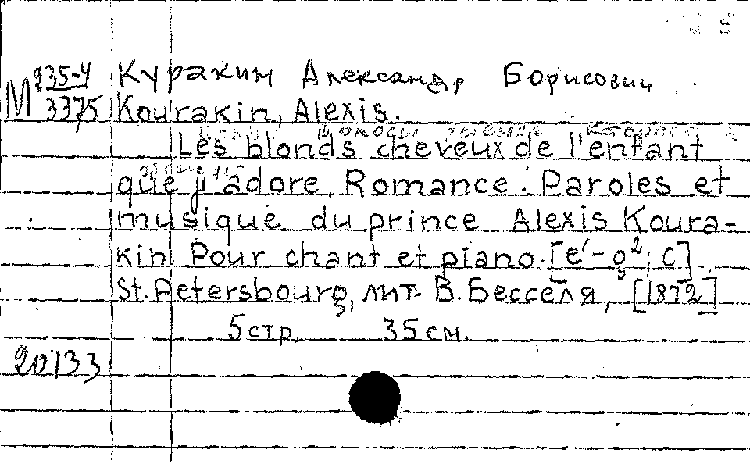 М 935-4 Куракин Александр Борисович
3375 Kourakin, Alexis.
Les blonds cheveux de l'enfant
que j'adore. Romance. Paroles et
musique du prince Alexis Koura-
kin. Pour chant et piano. [e'-g²; C]
St. Petersbourg, лит. В. Бесселя, [1872]
5 стр. 35 см.
20133